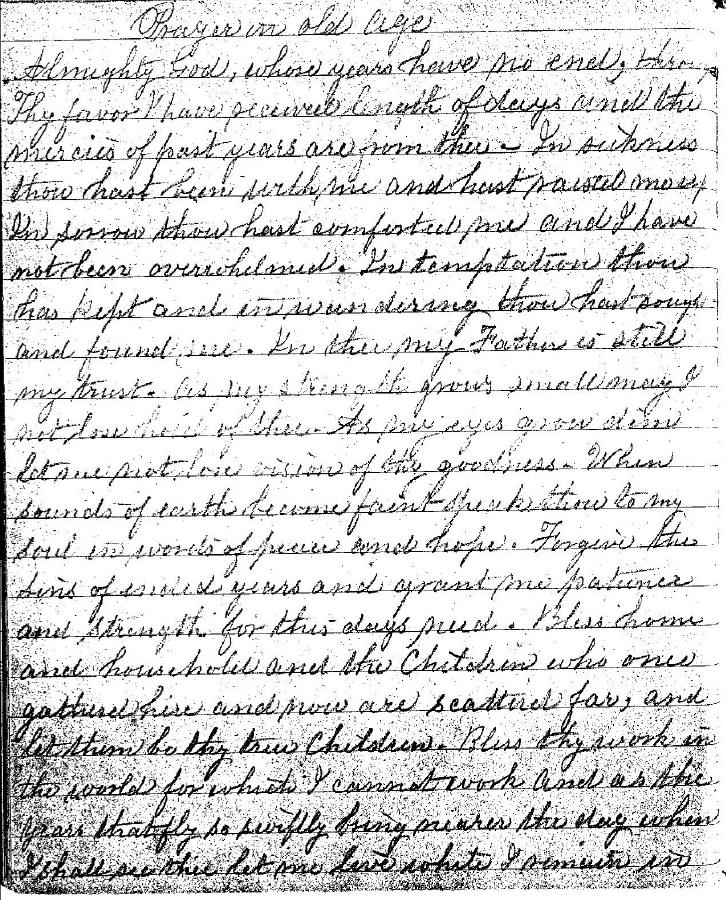 Prayer in old age
Almighty God, whose years have no end, thro
Thy favor I have received length of days and the
mercies of past years are from thee - In sickness
thou hast been with me and hast raised me up
In sorrow thou hast comforted me and I have
not been overwhelmed. In temptation thou
has kept and in wandering thou hast sough
and found me. In thee my Father is still
my trust. As my strength grows small may I
not lose hold of thee. As my eyes grow dim
let me not lose vision of thy goodness - When
sounds of earth become faint speak thou to my
soul in words of peace and hope. Forgive the
sins of ended years and grant me patience
and strength for this days need. Bless home
and household and the Children who once
gathered here and now are scattered far, and
let them be thy true Children. Bless thy work in
the world for which I cannot work and as the
years that fly so swiftly bring nearer the day when
I shall see thee let me live while I remain in